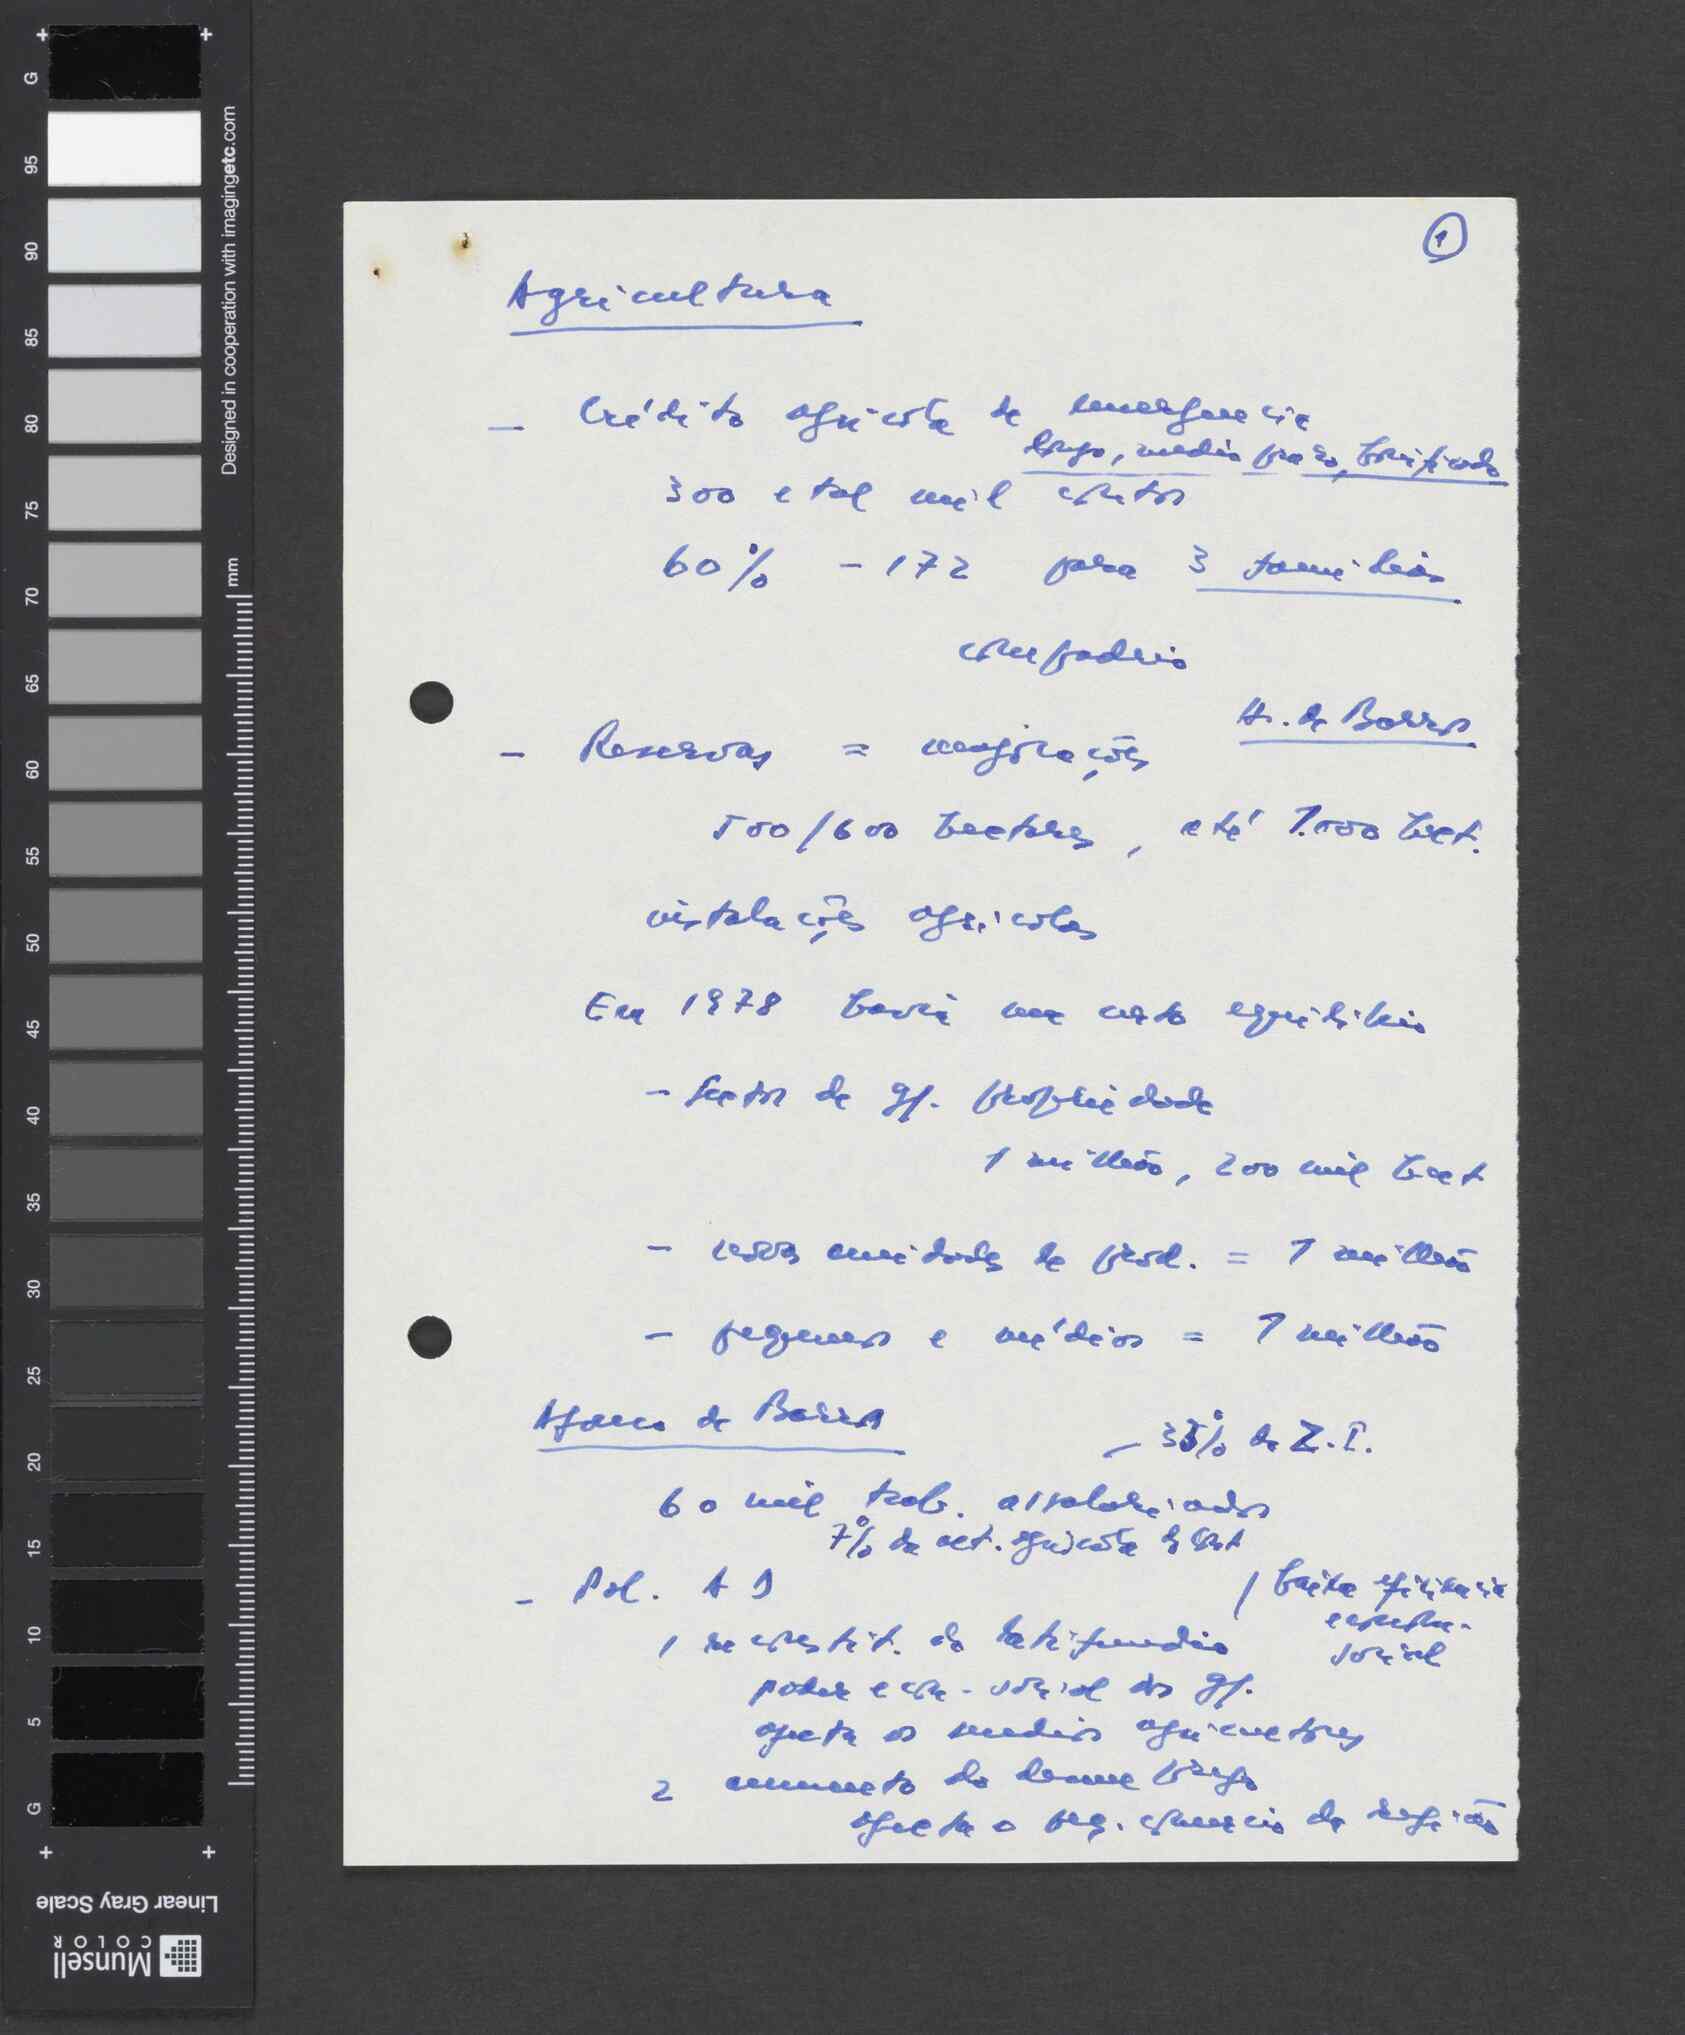 1
Agricultura
– Crédito agricola de emergencia
longo, medio prazo, bonificado
300 e tal mil contos
60% – 172 para 3 familias
compadrio
A. de Barros
– Reservas = majorações
500/600 hectares, até 1.000 hect.
instalações agricolas
Em 1978 havia um certo equilibrio
– Sector de gr. propriedade
1 milhão, 200 mil hect
– novas unidades de prod. = 1 milhão
– pequenos e médios = 1 milhão
Afonso de Barros
– 35% da Z.I.
60 mil trab. assalariados
7% da act. agricola do Cont
– Pol. AD
/ baixa eficiencia
social
1 reconstit. do latifundio
poder econ-social dos gr.
afecta os medios agricultores
2 aumento do desemprego
afecta o peq. comercio da região
G
95
90
85
80
75
70
65
60
55
50
45
40
35
30
25
20
15
10
5
G
Designed in cooperation with imagingetc.com
mm
Linear Gray Scale
Munsell
COLOR